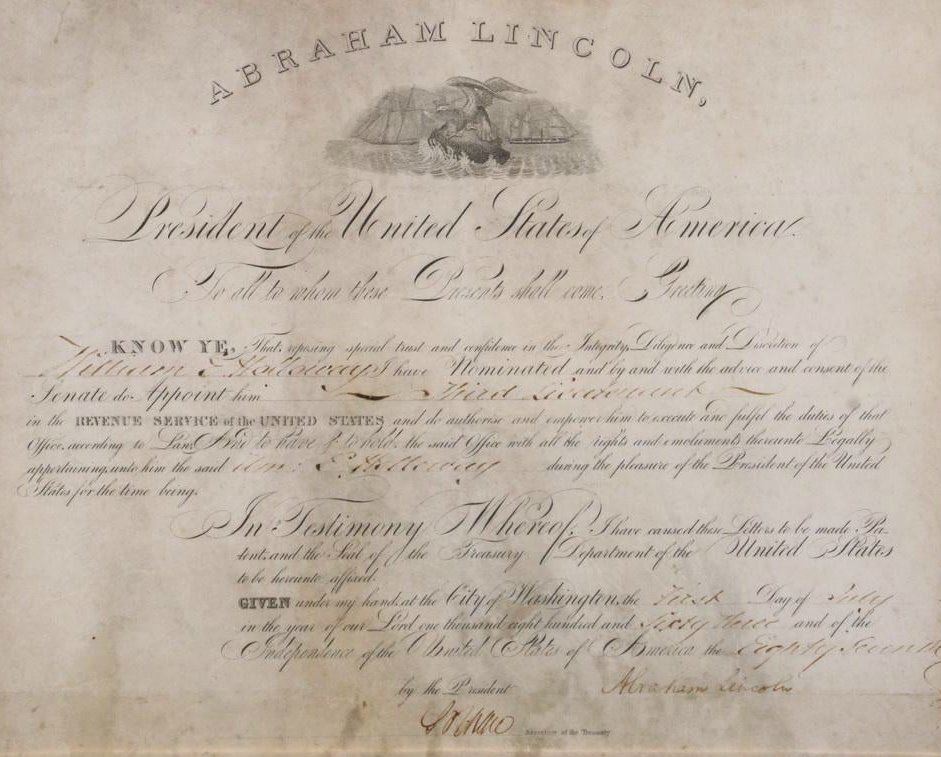 ABRAHAM LINCOLN,
President of the United States of America.
To all to whom these Presents shall come, Greeting
KNOW YE, That, reposing special trust and confidence in the Integrity, Diligence and Discretion of
Holloway I have Nominated and by and with the advice and consent of the
Senate do Appoint him Third Lieutenant
in the REVENUE SERVICE of the UNITED STATES and do authorise and empower him to execute and fulfil the duties of that
Office according to Law, And to have & to hold the said Office with all the rights and emoluments thereunto Legally
appertaining, unto him the said Wm. E. Holloway during the pleasure of the President of the United
States for the time being.
In Testimony Whereof, I have caused these Letters to be made Pa-
tent, and the Seal of the Treasury Department of the United States
to be hereunto affixed.
GIVEN under my hand, at the City of Washington, the First Day of July
in the year of our Lord one thousand eight hundred and Sixty three and of the
Independence of the United States of America the Eighty Seventh
by the President Abraham Lincoln
Secretary of the Treasury